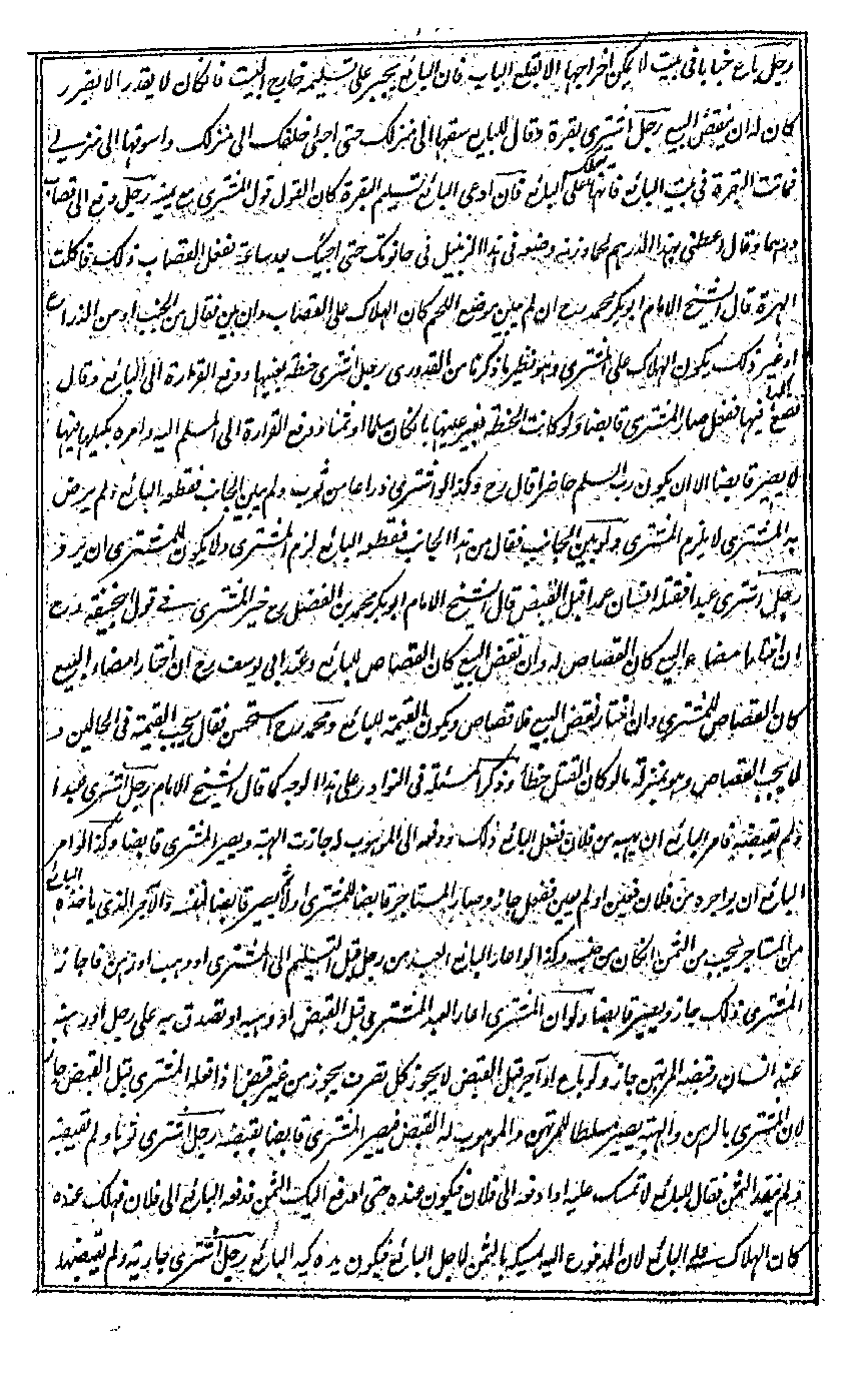 رجل باع خبا با فى بيت لا يمكن اخراجها الا بقلع الباب فان البائع يجبر على تسليمه خارج البيت فان كان لا يقدر الا بضرر
كان له ان ينقض البيع رجل اشترى بقرة وقال للبايع سقها الى منزلك حتى اجئ خلفك الى منزلك واسوقها الى منزلى
فماتت البقرة فى بيت البائع فانها تهلك على البائع فان ادعى البائع تسليم البقرة كان القول قول المشترى مع يمينه رجل دفع الى قصاب
درهما وقال اعطنى بهذا الدرهم لحما وزنه وضعه فى هذا الزنبيل فى حانوتك حتى اجيئك بعد ساعة ففعل القصاب ذلك فاكلت
الهرة قال الشيخ الامام ابو بكر محمد رح ان لم يبين موضع اللحم كان الهلاك على القصاب وان بين فقال من الجنب او من الذراع
او غير ذلك يكون الهلاك على المشترى وهو نظير ما ذكرنا من القدورى رجل اشترى حنطة بعينها ودفع الغرارة الى البائع وقال
ضع فيها ففعل صار المشترى قابضا ولو كانت الحنطة بغير عينها بان كان سلما او ثمنا ودفع الغرارة الى المسلم اليه وامره بكيلها فيها
لا يصير قابضا الا ان يكون رب السلم حاضرا قال رح وكذا لو اشترى ذراعا من ثوب ولم يبين الجانب فقطعه البائع ولم يرض
به المشترى لا يلزم المشترى ولو بين الجانب فقال من هذا الجانب فقطعه البائع لزم المشترى ولا يكون للمشترى ان يرد
رجل اشترى عبدا فقتله انسان عمدا قبل القبض قال الشيخ الامام ابو بكر محمد بن الفضل رح خير المشترى فى قول ابيحنيفة رح
ان اختار امضاء البيع كان القصاص له وان نقض البيع كان القصاص للبائع وعند ابى يوسف رح ان اختار امضاء البيع
كان القصاص للمشترى وان اختار نقض البيع فلا قصاص ويكون القيمة للبائع ومحمد رح استحسن فقال يجب القيمة فى الحالين و
لا يجب القصاص وهو بمنزلة ما لو كان القتل خطأ وذكر المسئلة فى النوادر على هذا الوجه كما قال الشيخ الامام رجل اشترى عبدا
ولم يقبضه فامر البائع ان يهبه من فلان ففعل البائع ذلك ودفعه الى الموهوب له جازت الهبة ويصير المشترى قابضا وكذا لو امر
البائع ان يواجره من فلان فعين او لم يعين ففعل جاز وصار المستاجر قابضا للمشترى اولا ثم يصير قابضا لنفسه والاجر الذى ياخذه البائع
من المستاجر يحسب من الثمن ان كان من جنسه وكذا لو اعار البائع العبد من رجل قبل التسليم الى المشترى او وهب او رهن فاجاز
المشترى ذلك جاز ويصير قابضا ولو ان المشترى اعار العبد المشترى قبل القبض او وهبه او تصدق به على رجل او رهنه
عند انسان وقبضه المرتهن جاز ولو باع او آجر قبل القبض لا يجوز كل تصرف يجوز من غير قبض اذا فعله المشترى قبل القبض جاز
لان المشترى بالرهن والهبة يصير مسلطا للمرتهن والموهوب له القبض فيصير المشترى قابضا بقبضه رجل اشترى ثوبا ولم يقبضه
ولم ينقد الثمن فقال للبائع لا تمسك عليه ادفعه الى فلان فيكون عنده حتى ادفع اليك الثمن فدفعه البائع الى فلان فهلك عنده
كان الهلاك على البائع لان المدفوع اليه يمسكه بالثمن لاجل البائع فيكون يده كيد البائع رجل اشترى جارية ولم يقبضها